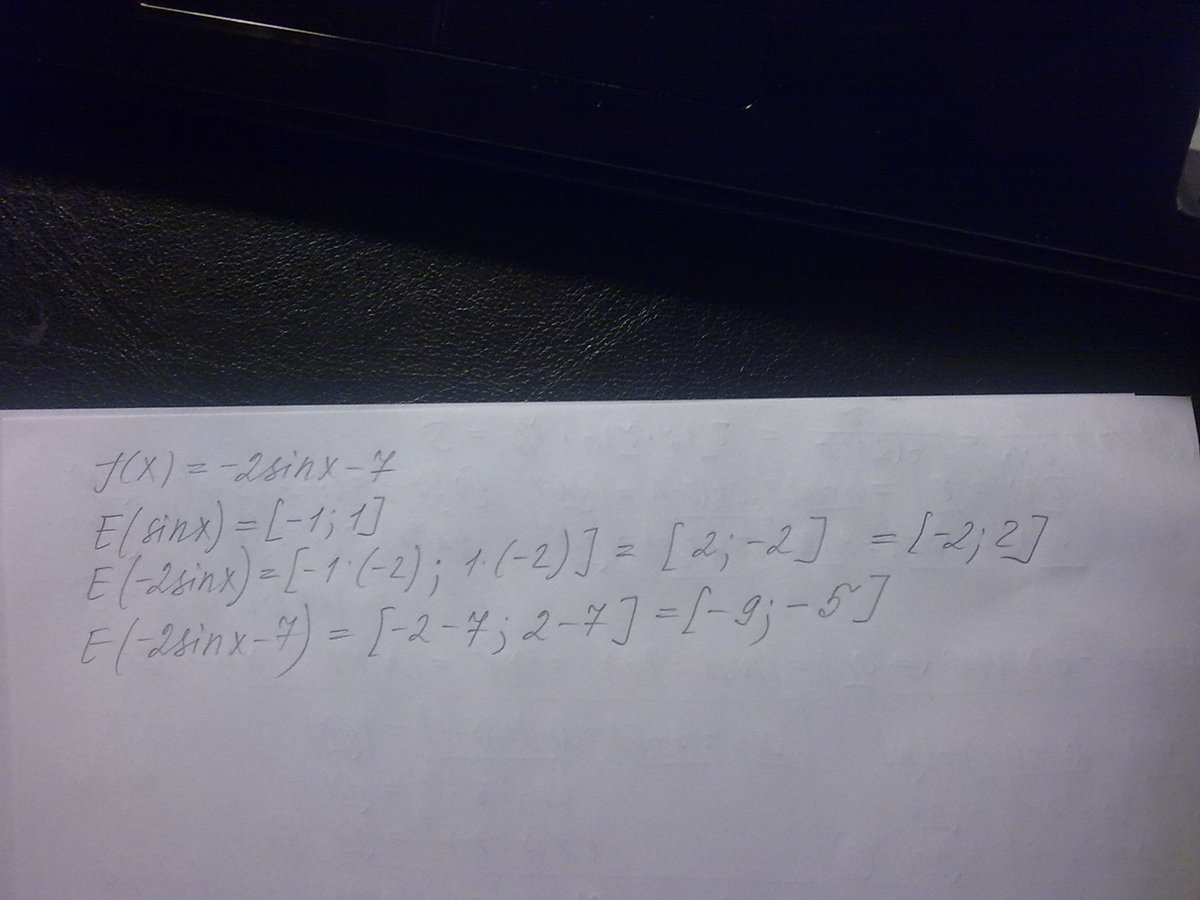 f(x) = -2sinx - 7
E(sinx) = [-1; 1]
E(-2sinx) = [-1·(-2); 1·(-2)] = [2; -2] = [-2; 2]
E(-2sinx-7) = [-2-7; 2-7] = [-9; -5]